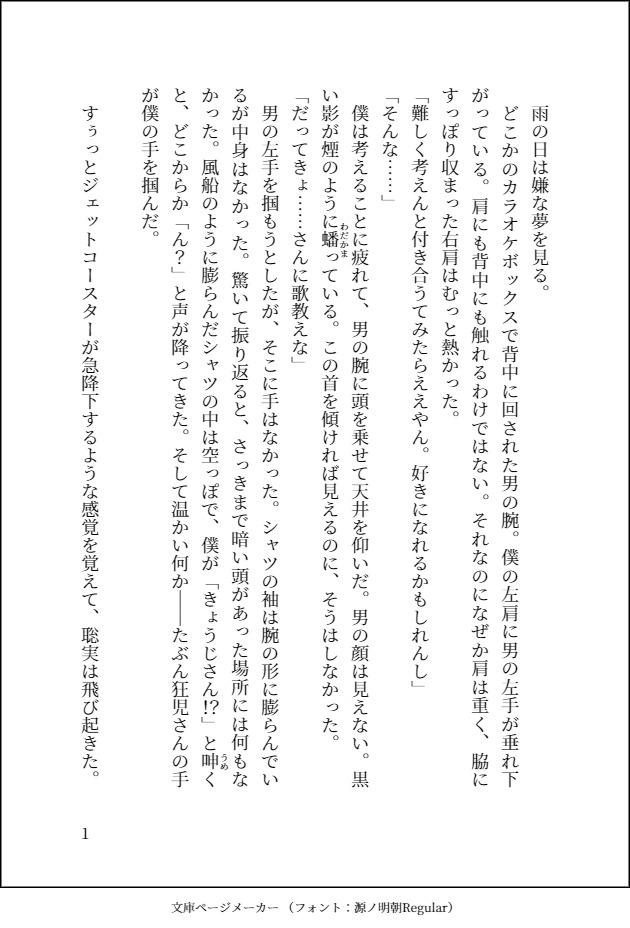 雨の日は嫌な夢を見る。
どこかのカラオケボックスで背中に回された男の腕。僕の左肩に男の左手が垂れ下
がっている。肩にも背中にも触れるわけではない。それなのになぜか肩は重く、脇に
すっぽり収まった右肩はむっと熱かった。
「難しく考えんと付き合うてみたらええやん。好きになれるかもしれんし」
「そんな……」
僕は考えることに疲れて、男の腕に頭を乗せて天井を仰いだ。男の顔は見えない。黒
い影が煙のように蟠わだかまっている。この首を傾ければ見えるのに、そうはしなかった。
「だってきょ……さんに歌教えな」
男の左手を掴もうとしたが、そこに手はなかった。シャツの袖は腕の形に膨らんでい
るが中身はなかった。驚いて振り返ると、さっきまで暗い頭があった場所には何もな
かった。風船のように膨らんだシャツの中は空っぽで、僕が「きょうじさん!?」と呻うめく
と、どこからか「ん？」と声が降ってきた。そして温かい何か――たぶん狂児さんの手
が僕の手を掴んだ。
すぅっとジェットコースターが急降下するような感覚を覚えて、聡実は飛び起きた。
1
文庫ページメーカー（フォント：源ノ明朝Regular）